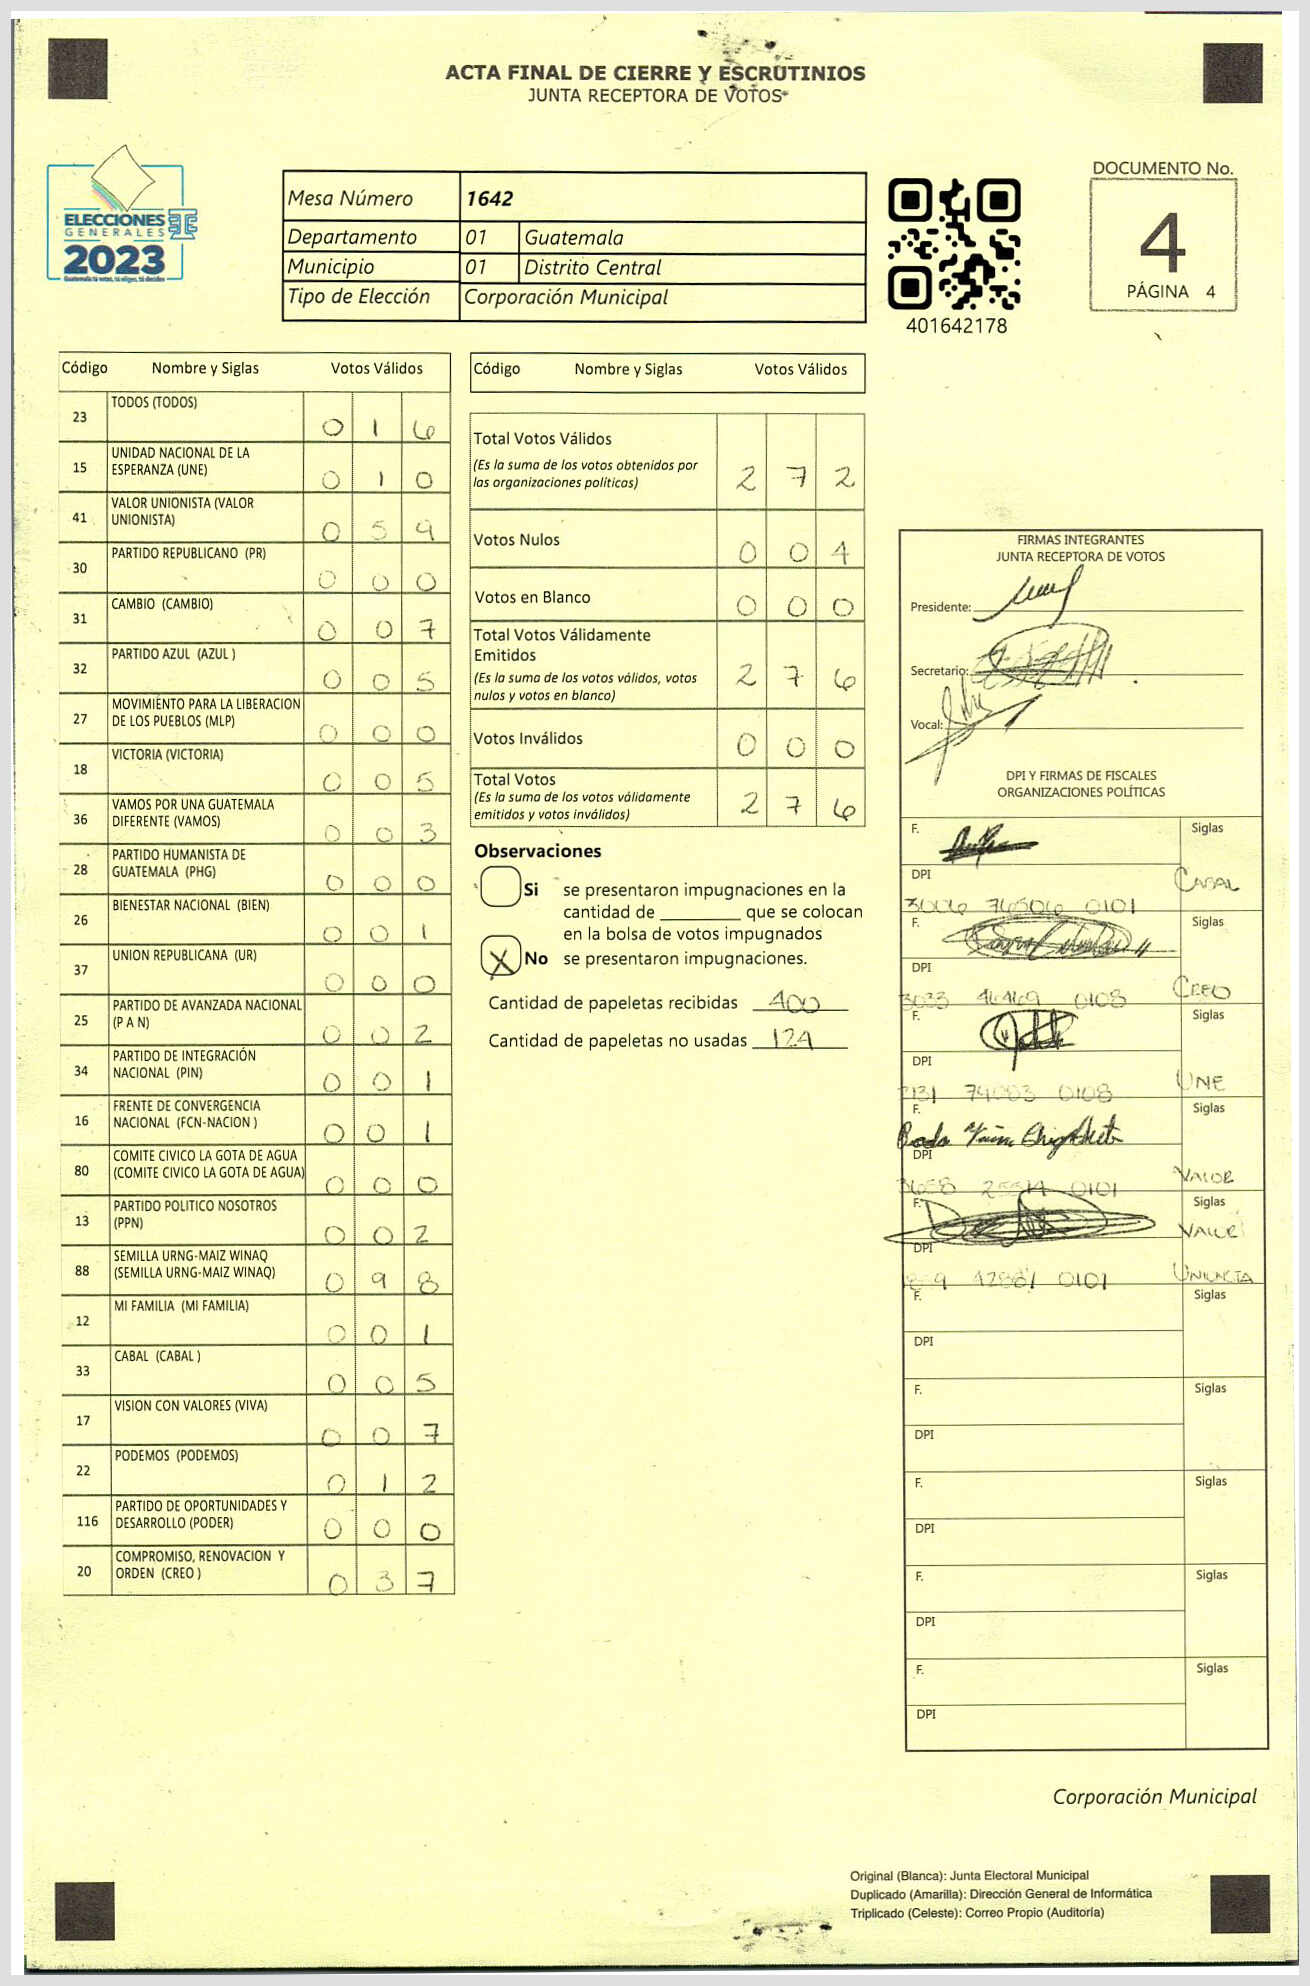 ACTA FINAL DE CIERRE Y ESCRUTINIOS
JUNTA RECEPTORA DE VOTOS
ELECCIONES
GENERALES
2023
Guatemala tú votas, tú eliges, tú decides
Mesa Número 1642
Departamento 01 Guatemala
Municipio 01 Distrito Central
Tipo de Elección Corporación Municipal
401642178
DOCUMENTO No.
4
PÁGINA 4
Código Nombre y Siglas Votos Válidos
23 TODOS (TODOS) 0 1 6
15 UNIDAD NACIONAL DE LA
ESPERANZA (UNE) 0 1 0
41 VALOR UNIONISTA (VALOR
UNIONISTA) 0 5 9
30 PARTIDO REPUBLICANO (PR) 0 0 0
31 CAMBIO (CAMBIO) 0 0 7
32 PARTIDO AZUL (AZUL ) 0 0 5
27 MOVIMIENTO PARA LA LIBERACION
DE LOS PUEBLOS (MLP) 0 0 0
18 VICTORIA (VICTORIA) 0 0 5
36 VAMOS POR UNA GUATEMALA
DIFERENTE (VAMOS) 0 0 3
28 PARTIDO HUMANISTA DE
GUATEMALA (PHG) 0 0 0
26 BIENESTAR NACIONAL (BIEN) 0 0 1
37 UNION REPUBLICANA (UR) 0 0 0
25 PARTIDO DE AVANZADA NACIONAL
(P A N) 0 0 2
34 PARTIDO DE INTEGRACIÓN
NACIONAL (PIN) 0 0 1
16 FRENTE DE CONVERGENCIA
NACIONAL (FCN-NACION ) 0 0 1
80 COMITE CIVICO LA GOTA DE AGUA
(COMITE CIVICO LA GOTA DE AGUA) 0 0 0
13 PARTIDO POLITICO NOSOTROS
(PPN) 0 0 2
88 SEMILLA URNG-MAIZ WINAQ
(SEMILLA URNG-MAIZ WINAQ) 0 9 8
12 MI FAMILIA (MI FAMILIA) 0 0 1
33 CABAL (CABAL ) 0 0 5
17 VISION CON VALORES (VIVA) 0 0 7
22 PODEMOS (PODEMOS) 0 1 2
116 PARTIDO DE OPORTUNIDADES Y
DESARROLLO (PODER) 0 0 0
20 COMPROMISO, RENOVACION Y
ORDEN (CREO ) 0 3 7
Código Nombre y Siglas Votos Válidos
Total Votos Válidos
(Es la suma de los votos obtenidos por
las organizaciones políticas) 2 7 2
Votos Nulos 0 0 4
Votos en Blanco 0 0 0
Total Votos Válidamente
Emitidos
(Es la suma de los votos válidos, votos
nulos y votos en blanco) 2 7 6
Votos Inválidos 0 0 0
Total Votos
(Es la suma de los votos válidamente
emitidos y votos inválidos) 2 7 6
Observaciones
Si se presentaron impugnaciones en la
cantidad de ________ que se colocan
en la bolsa de votos impugnados
X No se presentaron impugnaciones.
Cantidad de papeletas recibidas 400
Cantidad de papeletas no usadas 124
FIRMAS INTEGRANTES
JUNTA RECEPTORA DE VOTOS
Presidente:
Secretario:
Vocal:
DPI Y FIRMAS DE FISCALES
ORGANIZACIONES POLÍTICAS
F. Siglas
DPI CABAL
3006 76506 0101
F. Siglas
DPI CREO
3033 46469 0108
F. Siglas
DPI UNE
74003 0108
F. Siglas
DPI VALOR
0101
F. Siglas
DPI VALOR
42881 0101
F. Siglas
DPI
F. Siglas
DPI
F. Siglas
DPI
F. Siglas
DPI
F. Siglas
DPI
Corporación Municipal
Original (Blanca): Junta Electoral Municipal
Duplicado (Amarilla): Dirección General de Informática
Triplicado (Celeste): Correo Propio (Auditoría)